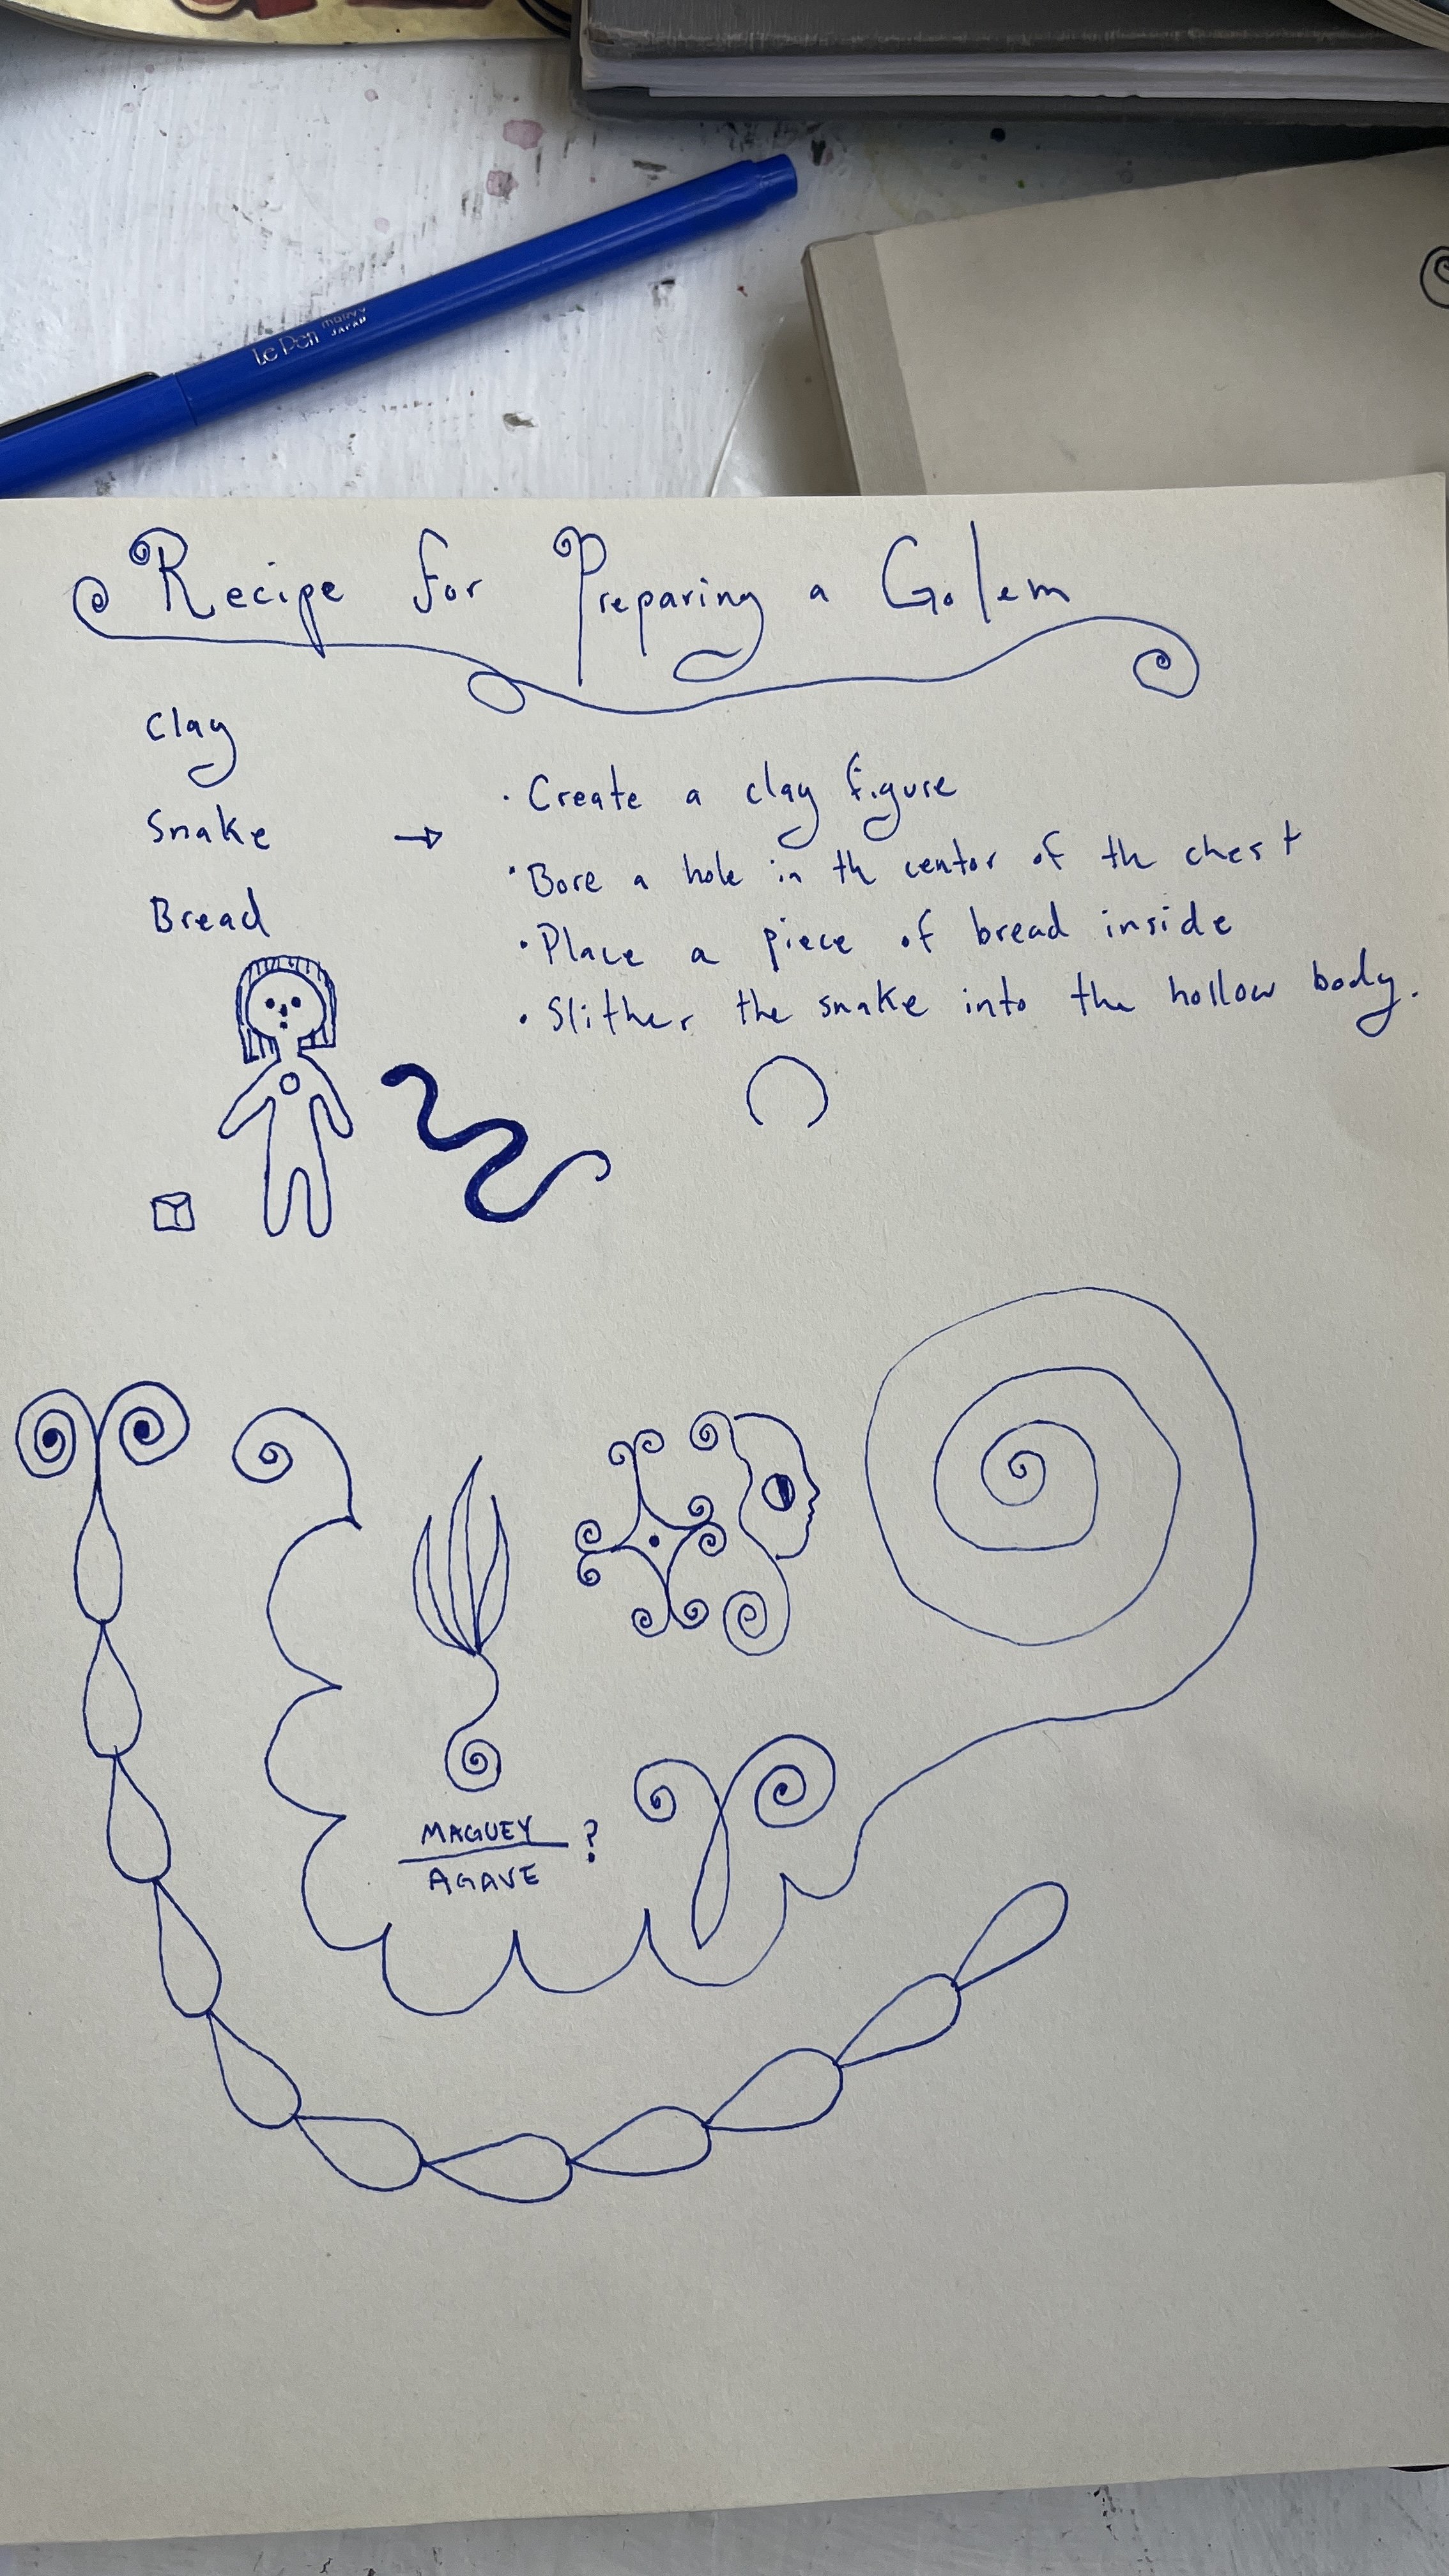 Le Pen MARVY JAPAN
Recipe for Preparing a Golem
Clay
Snake →
Bread
· Create a clay figure
· Bore a hole in th center of th chest
· Place a piece of bread inside
· Slither the snake into the hollow body.
MAGUEY ?
AGAVE